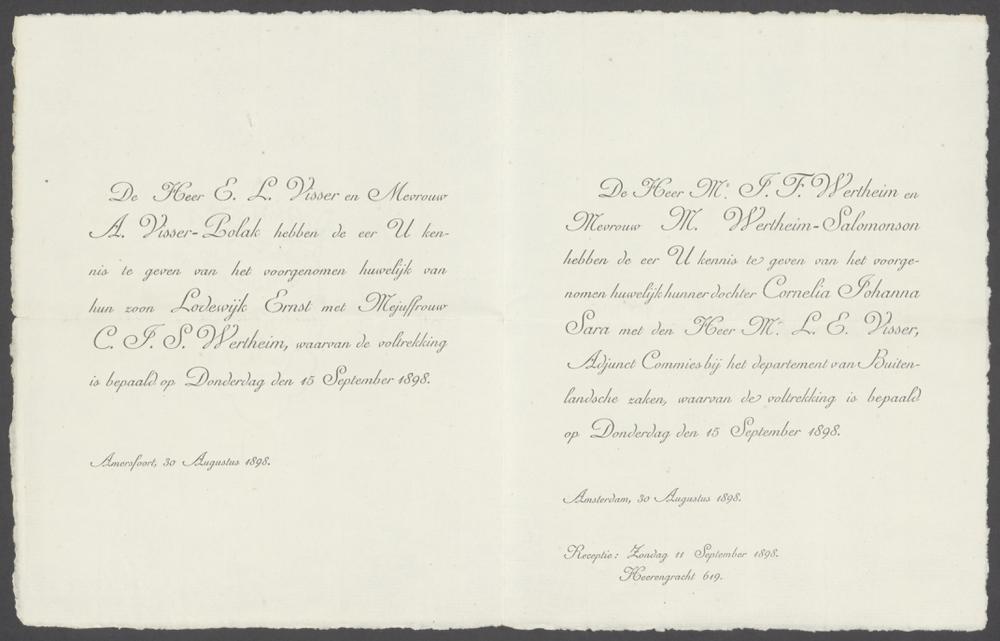 De Heer E. L. Visser en Mevrouw
A. Visser-Polak hebben de eer U ken-
nis te geven van het voorgenomen huwelijk van
hun zoon Lodewijk Ernst met Mejuffrouw
C. J. S. Wertheim, waarvan de voltrekking
is bepaald op Donderdag den 15 September 1898.
Amersfoort, 30 Augustus 1898.
De Heer Mr. J. F. Wertheim en
Mevrouw M. Wertheim-Salomonson
hebben de eer U kennis te geven van het voorge-
nomen huwelijk hunner dochter Cornelia Johanna
Sara met den Heer Mr. L. E. Visser,
Adjunct Commies bij het departement van Buiten-
landsche zaken, waarvan de voltrekking is bepaald
op Donderdag den 15 September 1898.
Amsterdam, 30 Augustus 1898.
Receptie: Zondag 11 September 1898.
Heerengracht 619.